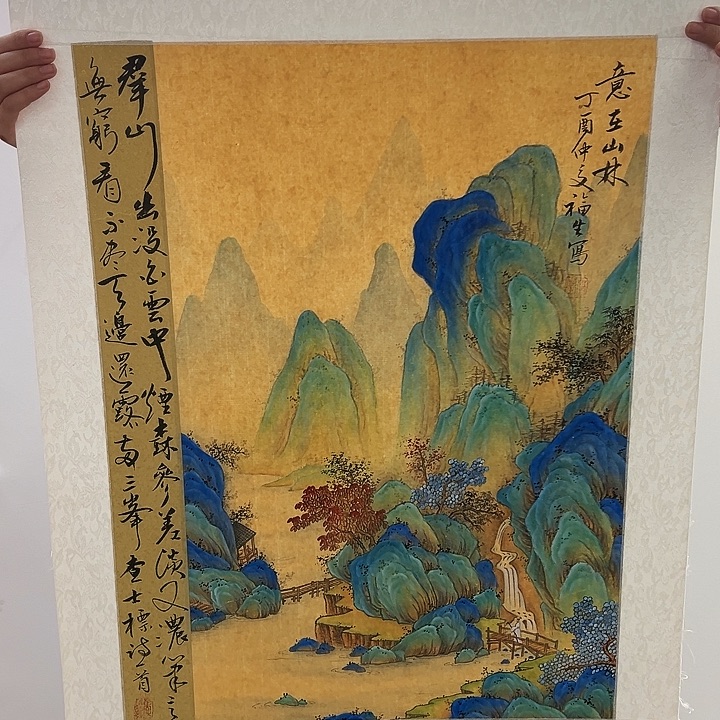 意在山林
丁酉仲夏福生寫
羣山出沒白雲中煙森參差淡又濃筆
無窮看不盡天邊還露兩三峯查士標詩一首